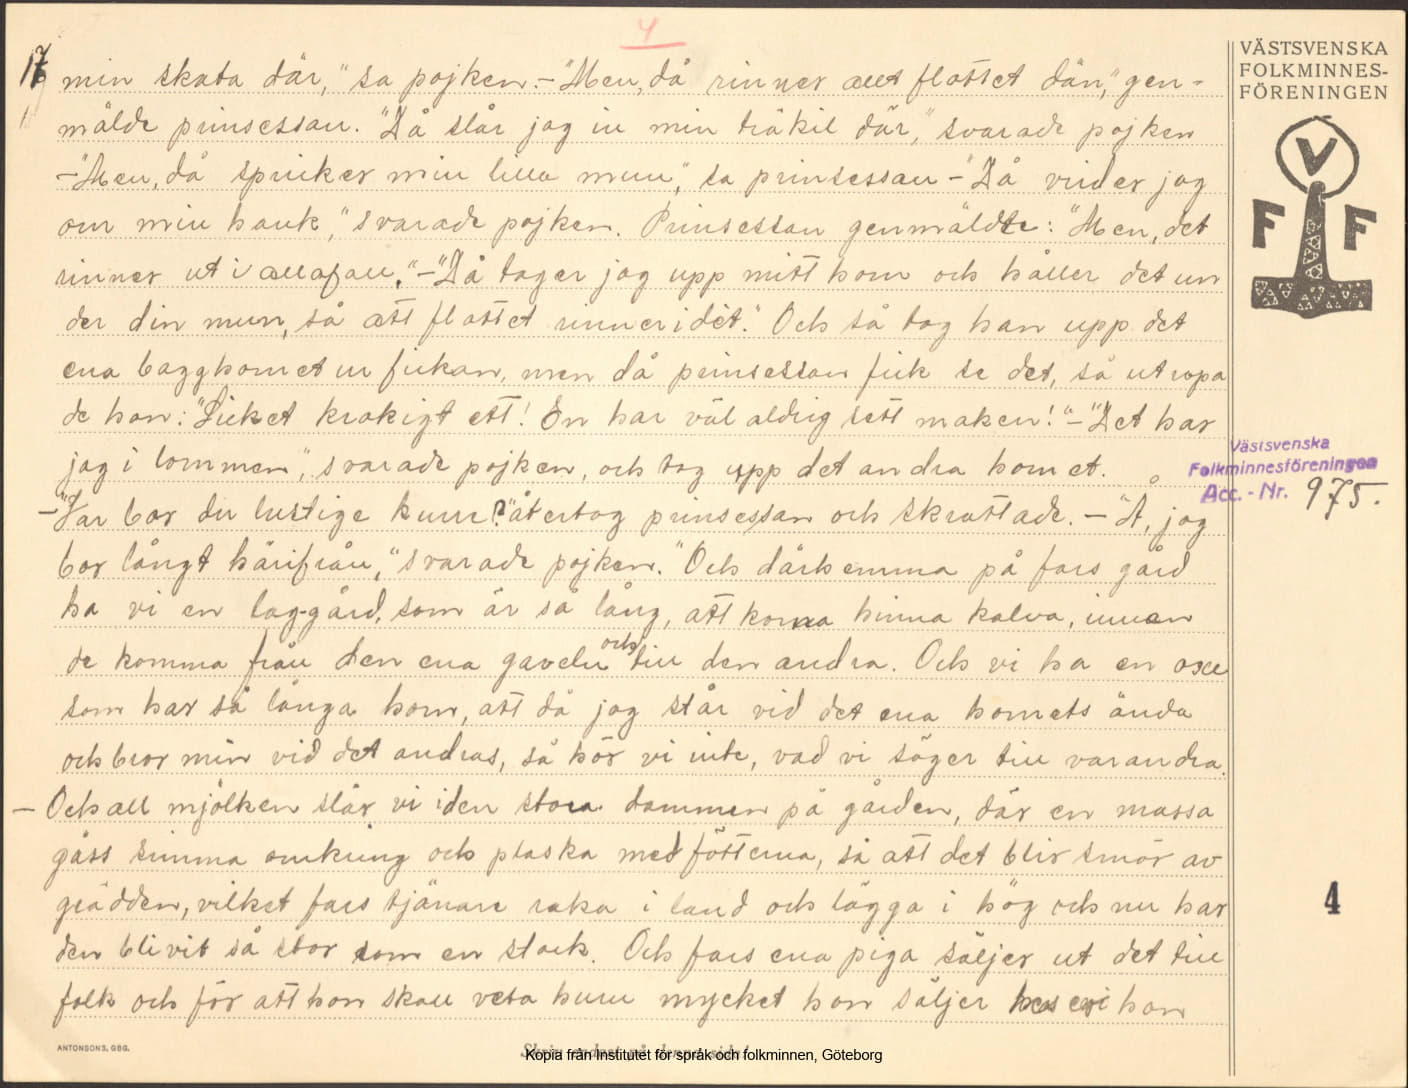 4
17
VÄSTSVENSKA
FOLKMINNES-
FÖRENINGEN
V
F F
min skata där," sa pojken. – "Men, då rinner allt flottet dän," gen-
mälde prinsessan. "Då slår jag in min träkil där," svarade pojken
– "Men, då spricker min lilla mun," sa prinsessan – "Då vrider jag
om min hank," svarade pojken. Prinsessan genmäldte: "Men, det
rinner ut i allafall." – "Då tager jag upp mitt horn och håller det un
der din mun, så att flottet rinner i dèt." Och så tog han upp det
ena bagghornet ur fickan, men då prinsessan fick se det, så utropa
de hon: "Sicket krokigt ett! En har väl aldrig sett maken!" – "Det har
jag i lommen", svarade pojken, och tog upp det andra hornet.
– "Var bor du lustige kurre?" återtog prinsessan och skrattade. – "Å, jag
bor långt härifrån," svarade pojken. "Och därhemma på fars gård
ha vi en lag-gård, som är så lång, att korna hinna kalva, innan
de komma från den ena gaveln och till den andra. Och vi ha en oxe
som har så långa horn, att då jag står vid det ena hornets ända
och bror min vid det andras, så hör vi inte, vad vi säger till varandra.
– Och all mjölken slår vi i den stora dammen på gården, där en massa
gäss simma omkring och plaska med fötterna, så att det blir smör av
grädden, vilket fars tjänare raka i land och lägga i hög och nu har
den blivit så stor som en stack. Och fars ena piga säljer ut det till
folk och för att hon skall veta huru mycket hon säljer hon
Västsvenska
Folkminnesföreningen
Acc. - Nr. 975.
4
ANTONSONS, GBG.
Skriv endast på denna sida!
Kopia från Institutet för språk och folkminnen, Göteborg